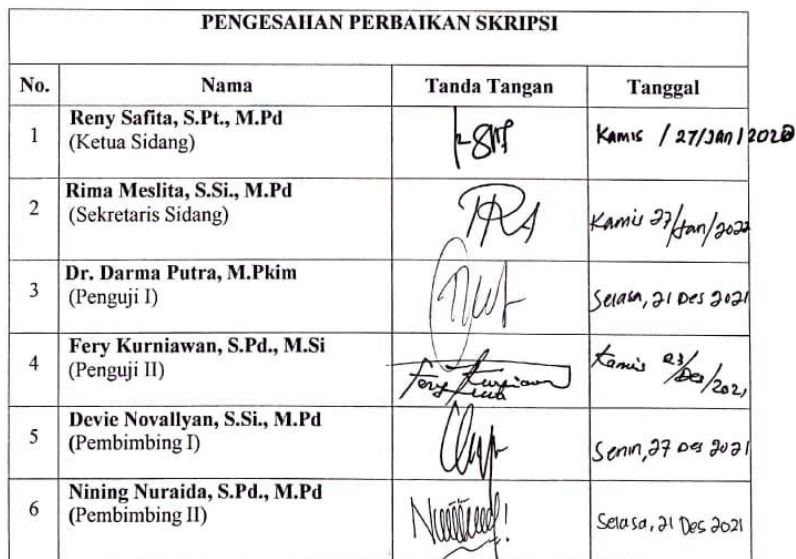 PENGESAHAN PERBAIKAN SKRIPSI
No. Nama Tanda Tangan Tanggal
1 Reny Safita, S.Pt., M.Pd
(Ketua Sidang) Kamis / 27/Jan / 2022
2 Rima Meslita, S.Si., M.Pd
(Sekretaris Sidang) Kamis 27/Jan/2022
3 Dr. Darma Putra, M.Pkim
(Penguji I) Selasa, 21 Des 2021
4 Fery Kurniawan, S.Pd., M.Si
(Penguji II) Kamis 23/Des/2021
5 Devie Novallyan, S.Si., M.Pd
(Pembimbing I) Senin, 27 Des 2021
6 Nining Nuraida, S.Pd., M.Pd
(Pembimbing II) Selasa, 21 Des 2021